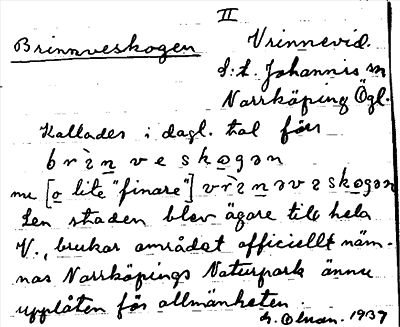 II
Brinnveskogen
Vrinnevid.
S:t. Johannis sn
Norrköping Ögl.
Kallades i dagl. tal förr
brìn ve skogən
nu [o lite "finare"] vrìnəveskogən
Sen staden blev ägare till hela
V., brukar området officiellt näm-
nas Norrköpings Naturpark ännu
upplåten för allmänheten.
1937